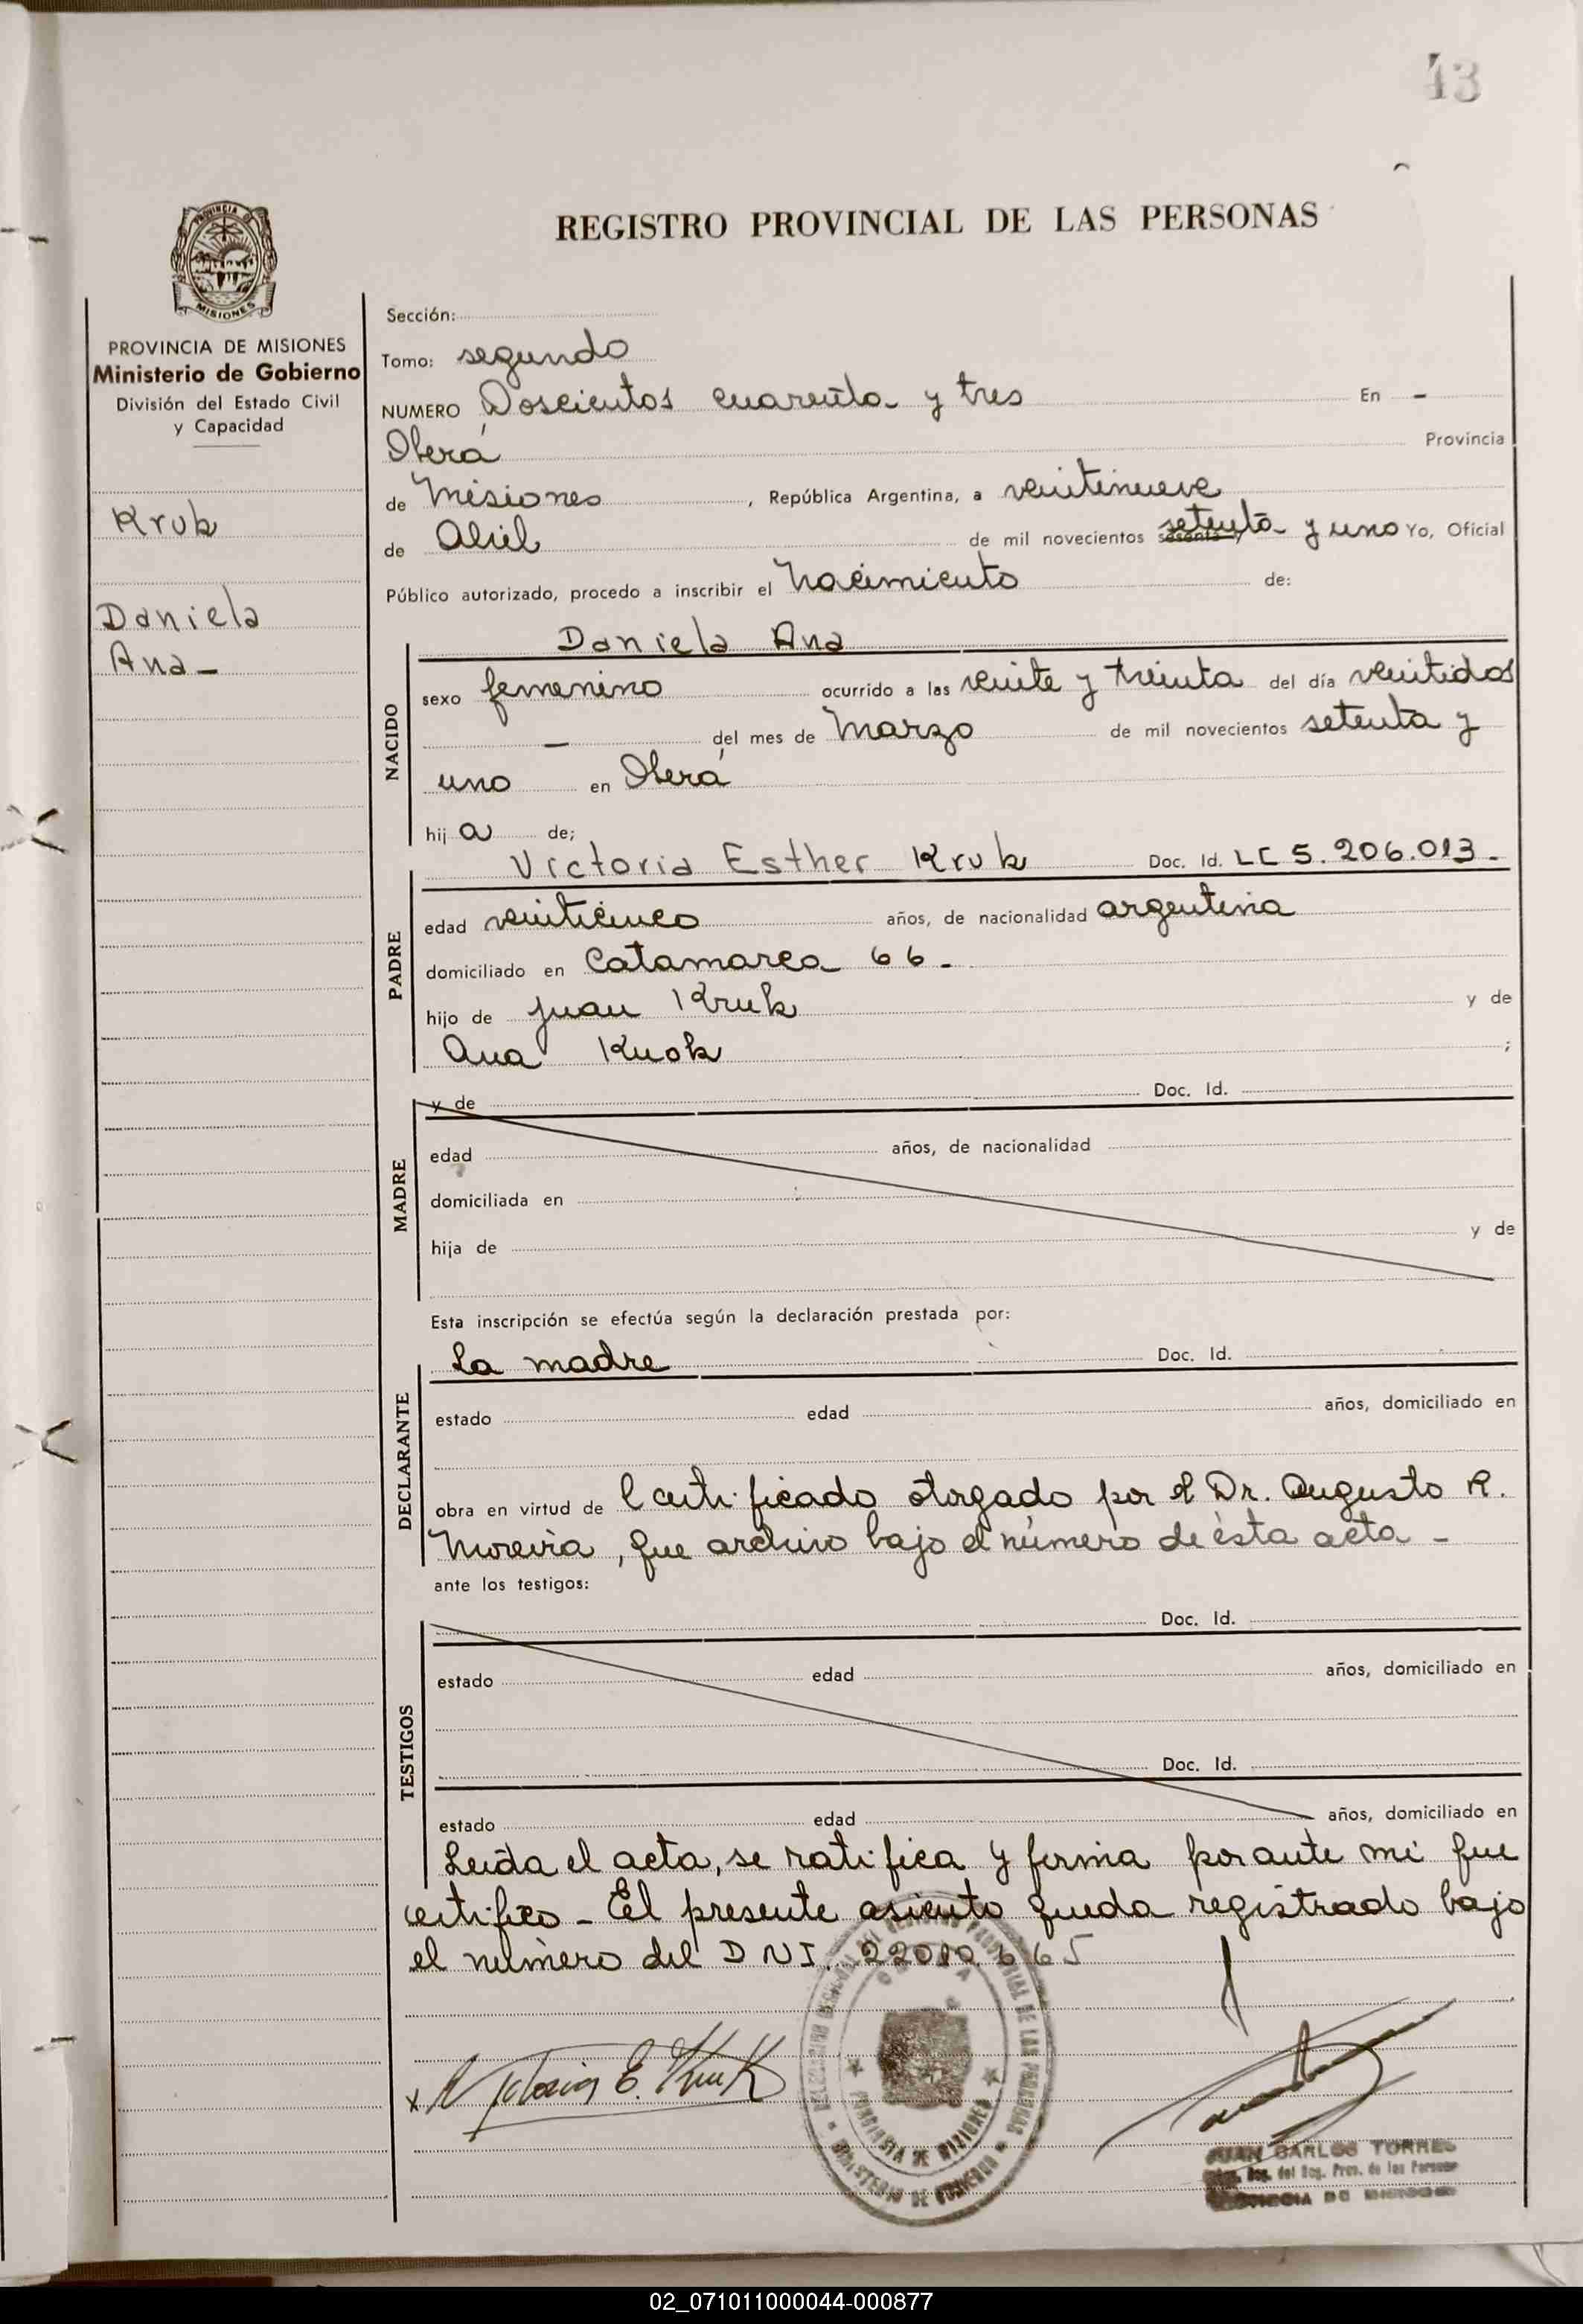 43
REGISTRO PROVINCIAL DE LAS PERSONAS
PROVINCIA DE
MISIONES
PROVINCIA DE MISIONES
Ministerio de Gobierno
División del Estado Civil
y Capacidad
Kruk
Daniela
Ana -
Sección:
Tomo: segundo
NUMERO Doscientos cuarenta y tres En -
Oberá Provincia
de Misiones, República Argentina, a veintinueve
de Abril de mil novecientos setenta y uno Yo, Oficial
Público autorizado, procedo a inscribir el Nacimiento de:
Daniela Ana
NACIDO
sexo femenino ocurrido a las veinte y treinta del día veintidos
- del mes de Marzo de mil novecientos setenta y
uno en Oberá
hij a de;
Victoria Esther Kruk Doc. Id. LC 5.206.013.-
PADRE
edad veinticinco años, de nacionalidad argentina
domiciliado en Catamarca 66.-
hijo de Juan Kruk y de
Ana ;
y de Doc. Id.
MADRE
edad años, de nacionalidad
domiciliada en
hija de y de
Esta inscripción se efectúa según la declaración prestada por:
La madre Doc. Id.
DECLARANTE
estado edad años, domiciliado en
obra en virtud de Certificado otorgado por el Dr. Augusto R.
Moreira, que archivo bajo el número de ésta acta -
ante los testigos:
Doc. Id.
TESTIGOS
estado edad años, domiciliado en
Doc. Id.
estado edad años, domiciliado en
Leída el acta, se ratifica y firma por ante mi que
certifico - El presente asiento queda registrado bajo
el número del DNI. 665
x Victoria E. Kruk
PROVINCIA DE MISIONES
MINISTERIO DE GOBIERNO
JUAN CARLOS TORRES
del Reg. Prov. de las Personas
PROVINCIA DE MISIONES
02_071011000044-000877